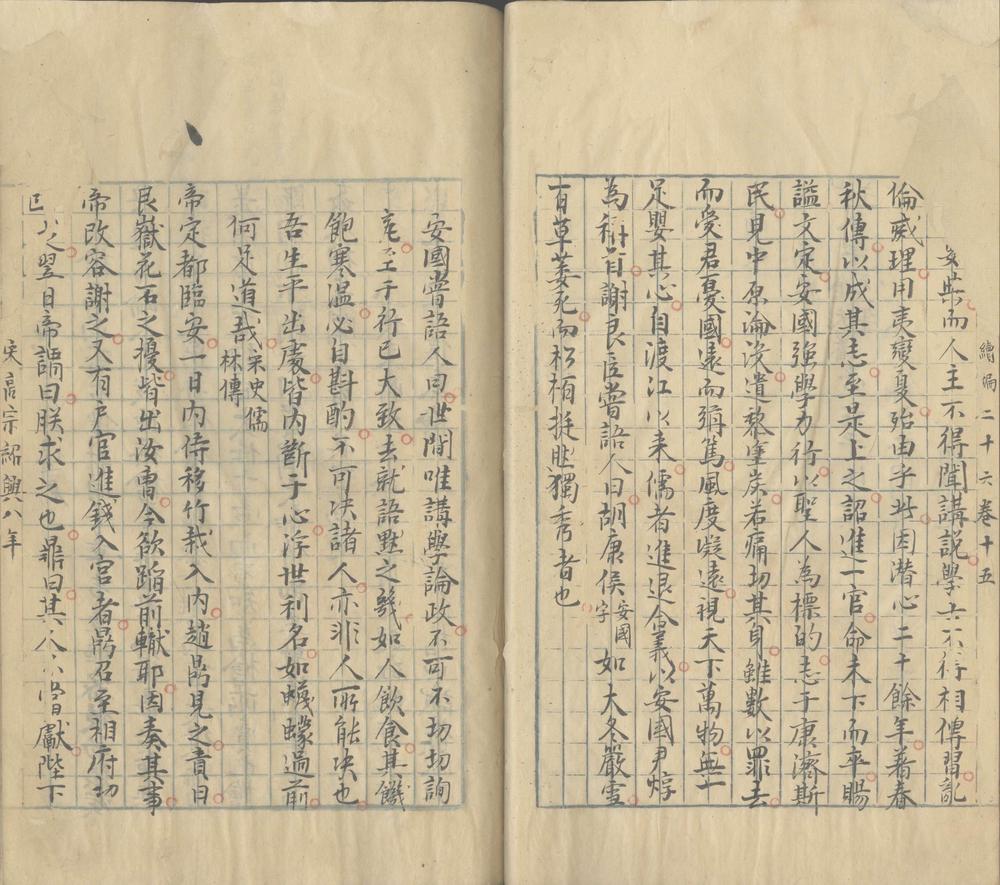 續編 二十六卷十五
而人主不得聞講説學士不得相傳習亂
倫滅理用夷變夏殆由乎此因潛心二十餘年著春
秋傳以成其志至是上之詔進一官命未下而卒賜
謚文定安國强學力行以聖人為標的志于康濟斯
民見中原淪没遺黎塗炭若痛切其身雖數以罪去
而受君憂國遠而彌篤風度凝遠視天下萬物無一
足嬰其心自渡江以来儒者進退合義以安國尹焞
為稱首謝良臣嘗語人曰胡康侯安國字如大冬嚴雪
百草萎死而松栢挺肰獨秀者也
安國嘗語人曰世間唯講學論政不可不切切詢
至于行己大致去就語黙之幾如人飲食其饑
飽寒温必自斟酌不可决諸人亦非人所能决也
吾生平出處皆内斷于心浮世利名如蠛蠓過前
何足道哉宋史儒林傳
帝定都臨安一日内侍移竹栽入内趙鼎見之責曰
艮嶽花石之擾皆出汝曹今欲蹈前轍耶因奏其事
帝改容謝之又有户官進錢入宫者鼎召至相府切
之翌日帝謂曰朕求之也鼎曰其人不當獻陛下
宋高宗紹興八年